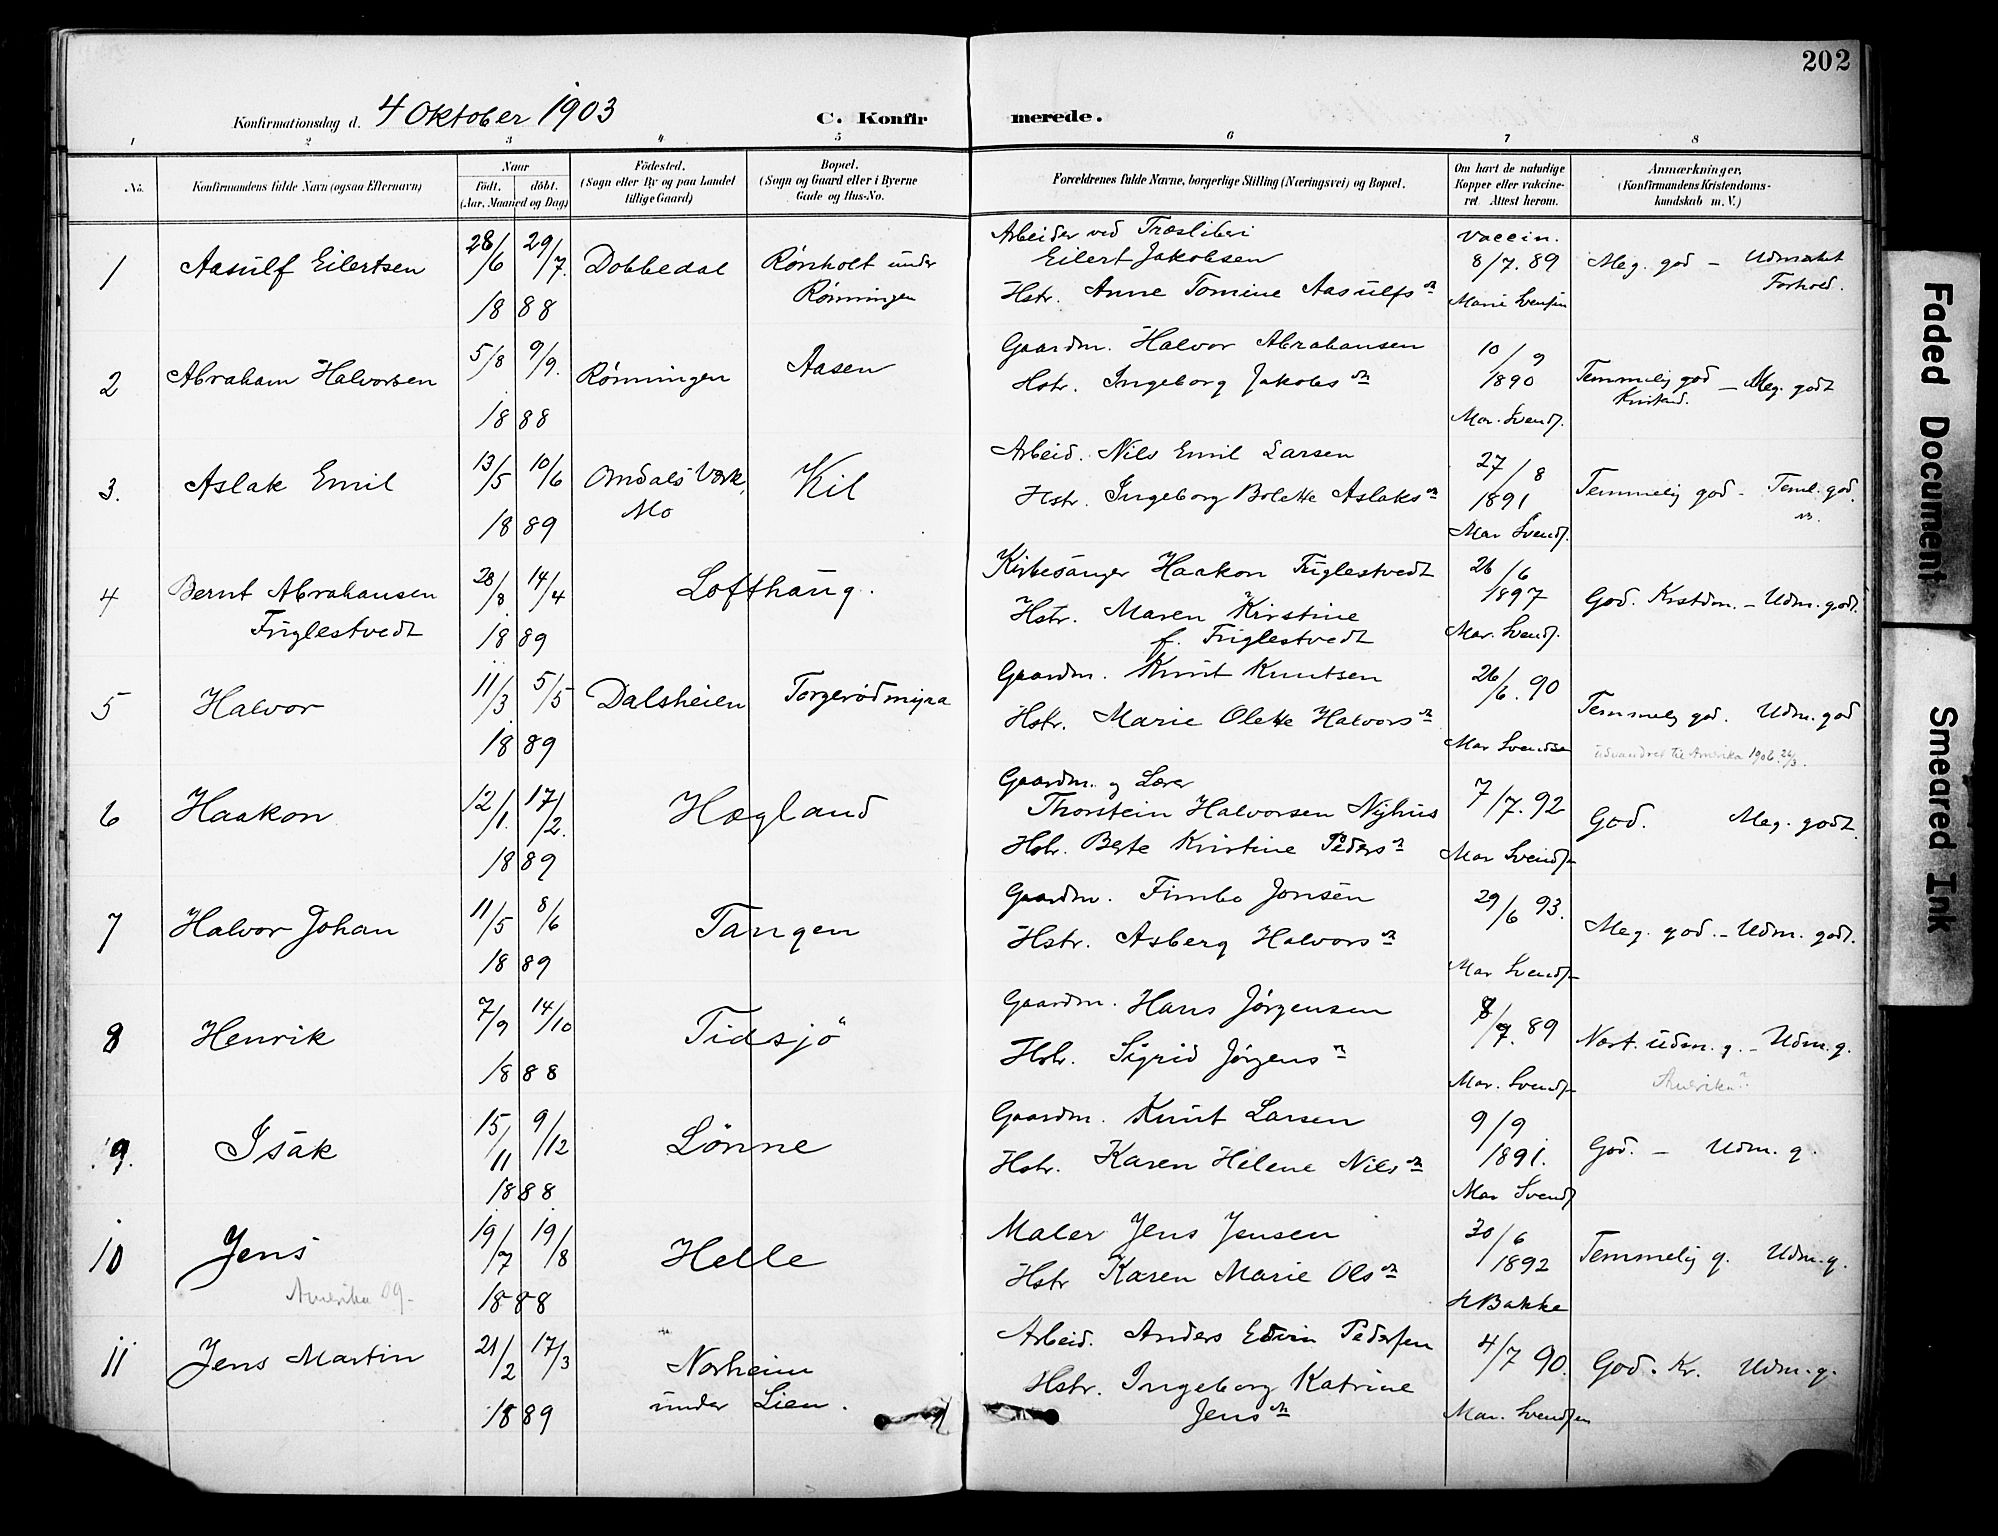 202
Konfirmationsdag d. 4 Oktober 1903
C. Konfir merede.
1 2 3 4 5 6 7 8
No.
Konfirmandens fulde Navn (ogsaa Efternavn)
Naar
født. døbt.
(Aar, Maaned og Dag)
Fødested.
(Sogn eller By og paa Landet
tillige Gaard)
Bopæl.
(Sogn og Gaard eller i Byerne
Gade og Hus-No.
Forældrenes fulde Navne, borgerlige Stilling (Næringsvei) og Bopæl.
Om havt de naturlige
Kopper eller vakcine-
ret. Attest herom.
Anmærkninger.
(Konfirmandens Kristendoms-
kundskab m. V.)
1 Aasulf Eilertsen
28/6 29/7.
1888
Dobbedal
Rønholt under
Rønningen
Arbeider ved Træsliberi
Eilert Jakobsen
Hstr. Anne Tomine Aasulfsn
Vaccin.
8/7. 89
Marie Svensen
Meg. god - Udmærket
Forhold.
2 Abraham Halvorsen
5/8 9/9.
1888
Rønningen
Aasen
Gaardm. Halvor Abrahamsen
Hstr. Ingeborg Jakobsn
10/9
1890
Mar. Svends.
Temmelig god - Meg. godt
Kristend.
3. Aslak Emil
13/5 10/6
1889
Omdals Værk,
Mo
Kil
Arbeid. Nils Emil Larsen
Hstr. Ingeborg Bolette Aslaksn
27/8
1891
Mar Svends.
Temmelig god - Teml. god.
4 Bernt Abrahamsen
Fuglestvedt
28/8 14/4
1889
Lofthaug.
Kirkesanger Haakon Fuglestvedt
Hstr. Maren Kirstine
f. Fuglestvedt
26/6
1897
Mar. Svends.
God. Krstdm. - Udm. godt.
5 Halvor
11/3 5/5
1889
Dalsheien
Torgerødmyra
Gaardm. Knut Knutsen
Hstr. Marie Olette Halvorsn
26/6. 90
Mar Svendsen
Temmelig god. Udm. god
udvandret til Amerika 1906 26/3.
6 Haakon
12/1. 17/2.
1889
Hægland
Gaardm. og Lærer
Thorstein Halvorsen Nyhus
Hstr. Berte Kristine Pedersn
7/7. 92
Mar Svendsen
God. Meg. godt.
7 Halvor Johan
11/5 8/6
1889
Tangen
Gaardm. Fimbo Jonsen
Hstr. Asberg Halvorsn
29/6 93.
Mar Svends
Meg. god. - Udm. godt.
8 Henrik
7/9 14/10
1888
Tidsjø
Gaardm. Hans Jørgensen
Hstr. Sigrid Jørgensn
8/7. 89
Mar. Svends
Næst. udm. g. - Udm. g.
Amerika
9. Isak
15/11 9/12
1888
Lønne
Gaardm. Knut Larsen
Hstr. Karen Helene Nilsn
9/9
1891.
Mar Svends
God. - Udm. g.
10 Jens
Amerika 09-
19/7 19/8
1888
Helle
Maler Jens Jensen
Hstr Karen Marie Olsn
30/6
1892
H Bakke
Temmelig g. Udm. g.
11 Jens Martin
21/2 17/3
1889
Norheim
under Lien.
Arbeid. Anders Edvin Pedersen
Hstr. Ingeborg Katrine
Jensn
4/7 90.
Mar. Svendsen
God. Kr. Udm. g.
Faded Document
Smeared Ink